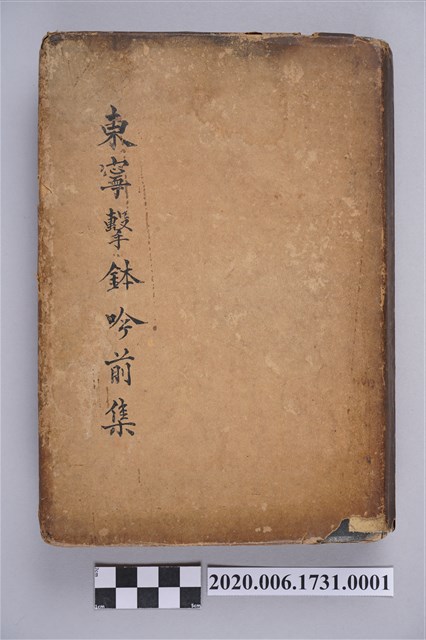 東寧擊鉢吟前集
2020.006.1731.0001